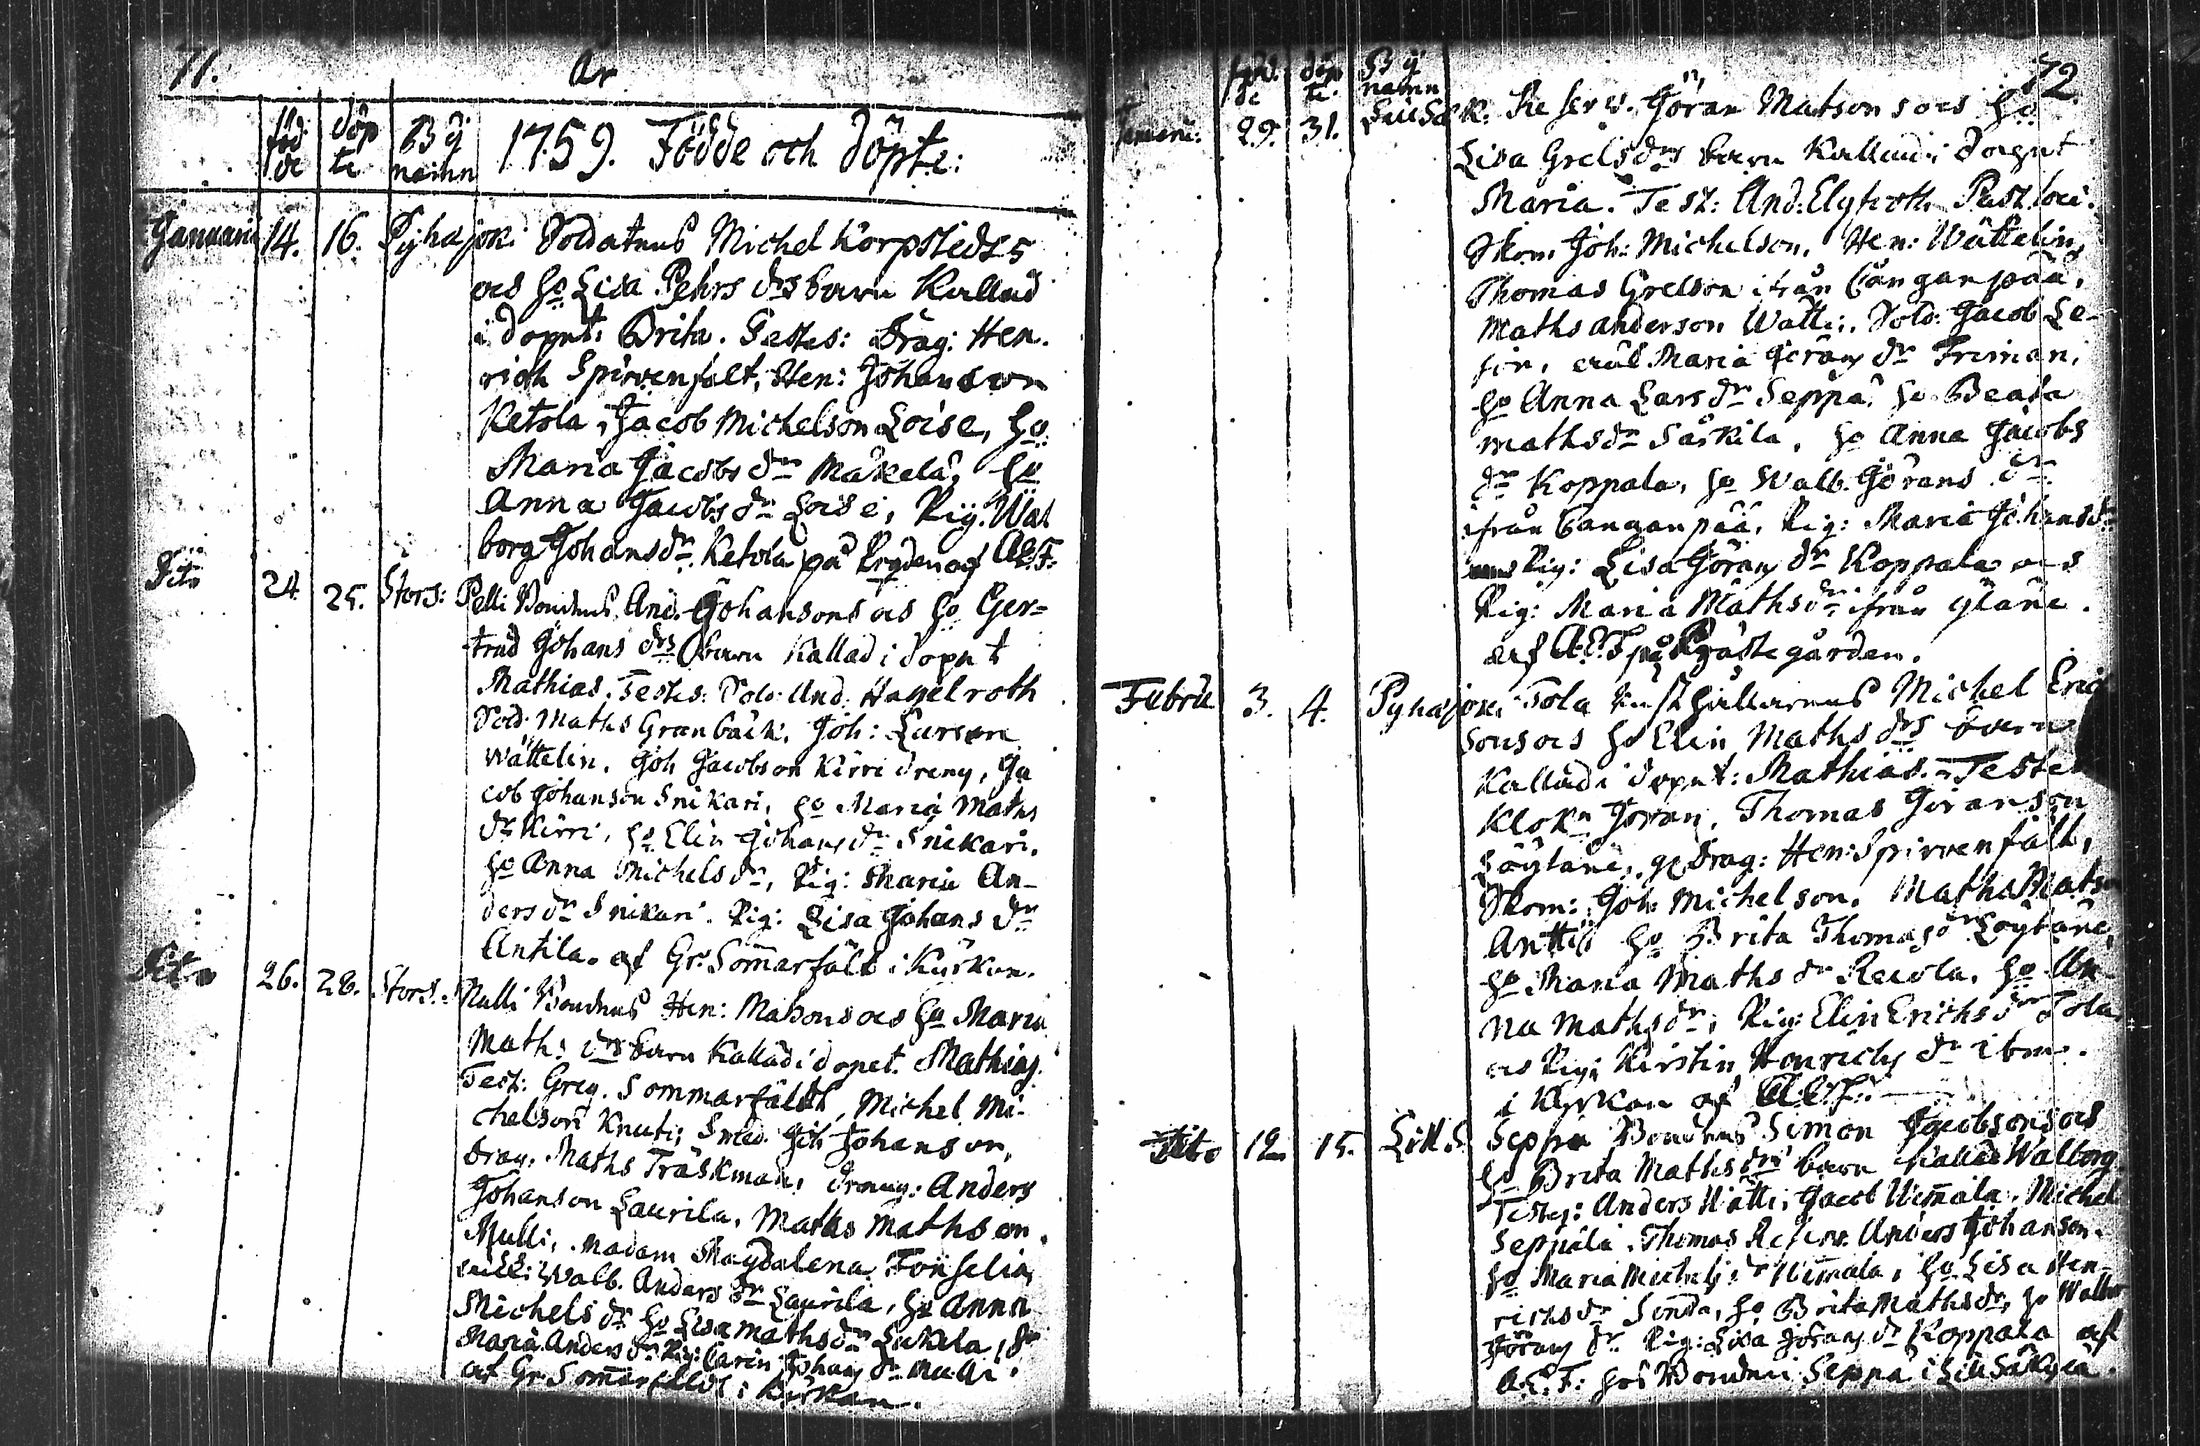 71. År
föd de döp te By namn 1759. Födde och döpte:
Januarii 14. 16. Pyhajok: Soldatens Michel Korpstedts
och ho Lisa Pehrs drs barn Kallad
i dopnt: Brita. Testes: Drag: Hen.
rich Spirvenfält, Hen: Johanson
Ketola, Jacob Michelson Loise, ho
Maria Jacobs dr Mäkelä, ho
Anna Jacobs dr Loise, Pig. Wal
borg Johansdr. Ketola på Bryden af A.E.F.
Dito 24. 25. Stors: Pelli Bondens And. Johansons os ho Ger=
trud Johans drs barn Kallad i dopnt
Mathias. Testes: Sold: And: Hagelroth
Sold: Maths Granbäck, Joh: Larson
Wättelin. Joh Jacobson Kirri dreng, Ja
cob Johanson Snikari, ho Maria Maths
dr Kirri, ho Elin Johans dr Snikari.
ho Anna Michels dr, Pig: Maria An-
ders dr Snikari. Pig: Lisa Johans dr
Antila. af Gr. Som̄arfält i Kürkan.
Dito 26. 28. Stors: Nulli Bondens Hen: Matsons os ho Maria
Math: drs barn Kallad i dopet. Mathias.
Test: Greg. Sommarfäldt, Michel Mi-
chelson Knuti, Smed. Joh Johanson,
Drag. Maths Träskman, dräng: Anders
Johanson Laurila, Maths Mathson
Mulli, Madam Magdalena Fonselia,
Walb. Anders dr Laurila, ho Anna
Michels dr ho Lisa Maths dr Lukila,
Maria Anders dr Pig: Carin Johans dr Nulli,
af Gr. Som̄arfeldt i Kürkan.
72.
född de döp te. By namn
Januarii: 29. 31. LillSäk. Reserv. Göran Matsons os ho
Lisa Grels drs barn Kallad i dopnt
Maria. Test: And: Elyfroth Past. loci.
Skom. Joh: Michelson, Hen: Wättelin,
Thomas Grelson ifrån Canganpää,
Maths anderson Watti, Sold: Jacob Le-
fin, Maria Görans dr Friman,
ho Anna Lars dr Seppä, ho Beata
Maths dr Särkilä, ho Anna Jacobs
dr Koppala, ho Walb. Görans dr
ifrån Canganpää, Pig: Maria Johansdr
Pig: Lisa Görans dr Koppala os
Pig: Maria Maths dr ifrån Yläne.
af A.E.F på Prästegården.
Februa 3. 4. Pyhajoki Tola Rusthållarens Michel Eric
sons os ho Elin Maths drs barn
Kallad i dopnt: Mathias. Testes
Klokn Göran, Thomas Göranson
Löytäne, Drag: Hen: Spirvenfält,
Skom: Joh: Michelson. Maths Mats
Anttila ho Brita Thomas dr Löytäne,
ho Maria Maths dr Recola, ho An
na Maths dr, Pig: Elin Erichs dr Tola
os Pig: Kirstin Henrichs dr ibm.
i Kyrkan af A.E.F.
Dito 12 15. Lill S. Seppa Bondens Simon Jacobsons os
ho Brita Maths drs barn Kallad Walborg
Testes: Anders Watti, Jacob Uim̄ala, Michel
Seppälä, Thomas Reserv. Anders Johanson.
ho Maria Michels dr Uim̄ala, ho Lisa Hen-
richs dr Sonda, ho Brita Maths dr, ho Walbor
Görans dr. Pig: Lisa Görans dr Koppala af
A.E.F: hos Bonden Seppä i LillSäkylä.